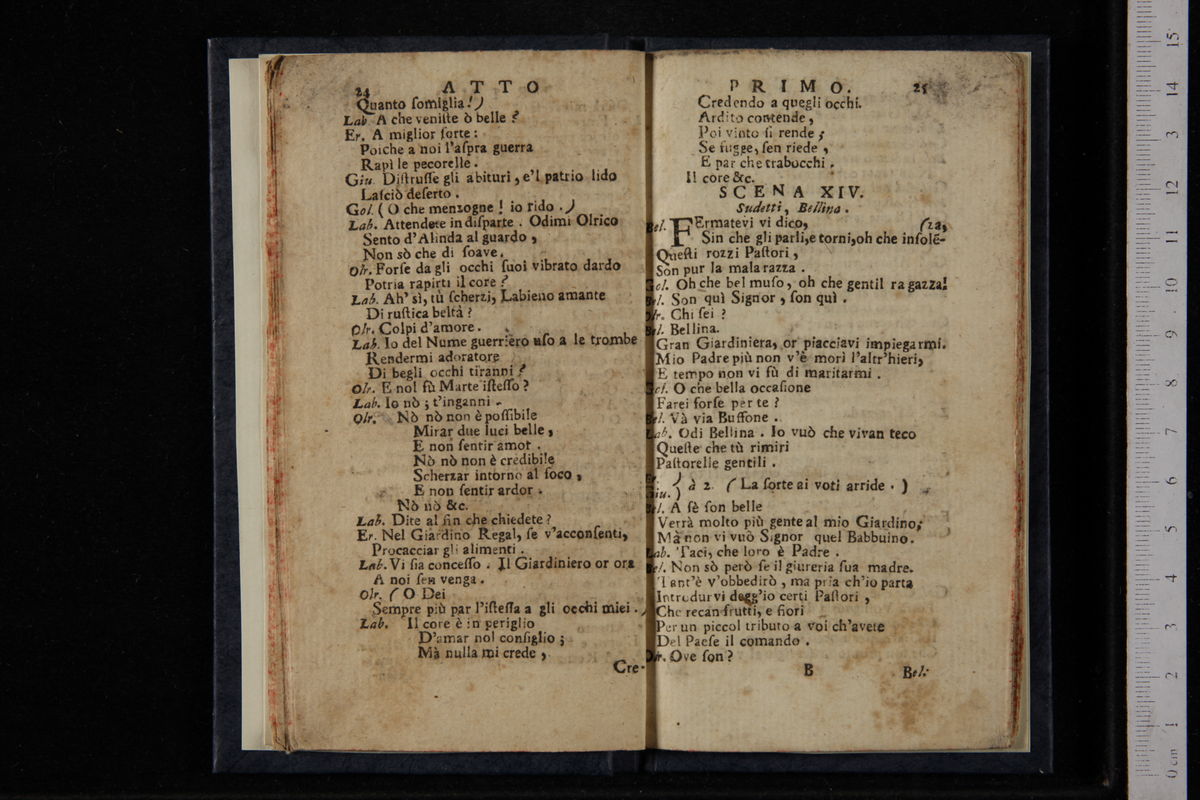 24 ATTO
Quanto ſomiglia!)
Lab A che veniſte ò belle?
Er. A miglior ſorte:
Poiche a noi l'aſpra guerra
Rapì le pecorelle.
Giu Diſtruſſe gli abituri, e'l patrio lido
Laſciò deſerto.
Gol. (O che menzogne! io rido.)
Lab. Attendete in diſparte. Odimi Olrico
Sento d'Alinda al guardo,
Non sò che di ſoave.
Olr. Forſe da gli occhi ſuoi vibrato dardo
Potria rapirti il core?
Lab. Ah' sì, tù ſcherzi, Labieno amante
Di ruſtica beltà?
Olr. Colpi d'amore.
Lab. Io del Nume guerriero uſo a le trombe
Rendermi adoratore
Di begli occhi tiranni?
Olr. E nol fù Marte iſteſſo?
Lab. Io nò; t'inganni.
Olr. Nò nò non è poſſibile
Mirar due luci belle,
E non ſentir amor.
Nò nò non è credibile
Scherzar intorno al foco,
E non ſentir ardor.
Nò nò &c.
Lab. Dite al fin che chiedete?
Er. Nel Giardino Regal, ſe v'acconſenti,
Procacciar gli alimenti.
Lab. Vi ſia conceſſo. Il Giardiniero or ora
A noi ſen venga.
Olr. (O Dei
Sempre più par l'iſteſſa a gli occhi miei.)
Lab. Il core è in periglio
D'amar nol conſiglio;
Mà nulla mi crede,
Cre-
PRIMO. 25
Credendo a quegli occhi.
Ardito contende,
Poi vinto ſi rende;
Se fugge, ſen riede,
E par che trabocchi.
Il core &c.
SCENA XIV.
Sudetti, Bellina.
Bel. FErmatevi vi dico, (za,
Sin che gli parli, e torni, oh che inſolẽ-
Queſti rozzi Paſtori,
Son pur la mala razza.
Gol. Oh che bel muſo, oh che gentil ragazza!
Bel. Son quì Signor, ſon quì.
Olr. Chi ſei?
Bel. Bellina.
Gran Giardiniera, or piacciavi impiegarmi.
Mio Padre più non v'è morì l'altr'hieri,
E tempo non vi fù di maritarmi.
Gol. O che bella occaſione
Farei forſe per te?
Bel. Và via Buffone.
Lab. Odi Bellina. Io vuò che vivan teco
Queſte che tù rimiri
Paſtorelle gentili.
Er. )
Giu. ) à 2. (La ſorte ai voti arride.)
Bel. A fè ſon belle
Verrà molto più gente al mio Giardino;
Mà non vi vuò Signor quel Babbuino.
Lab. Taci, che loro è Padre.
Bel. Non sò però ſe il giureria ſua madre.
Tant'è v'obbedirò, ma pria ch'io parta
Introdur vi degg'io certi Paſtori,
Che recan frutti, e fiori
Per un piccol tributo a voi ch'avete
Del Paeſe il comando.
Olr. Ove ſon?
B Bel.
0 cm 1 2 3 4 5 6 7 8 9 10 11 12 13 14 15